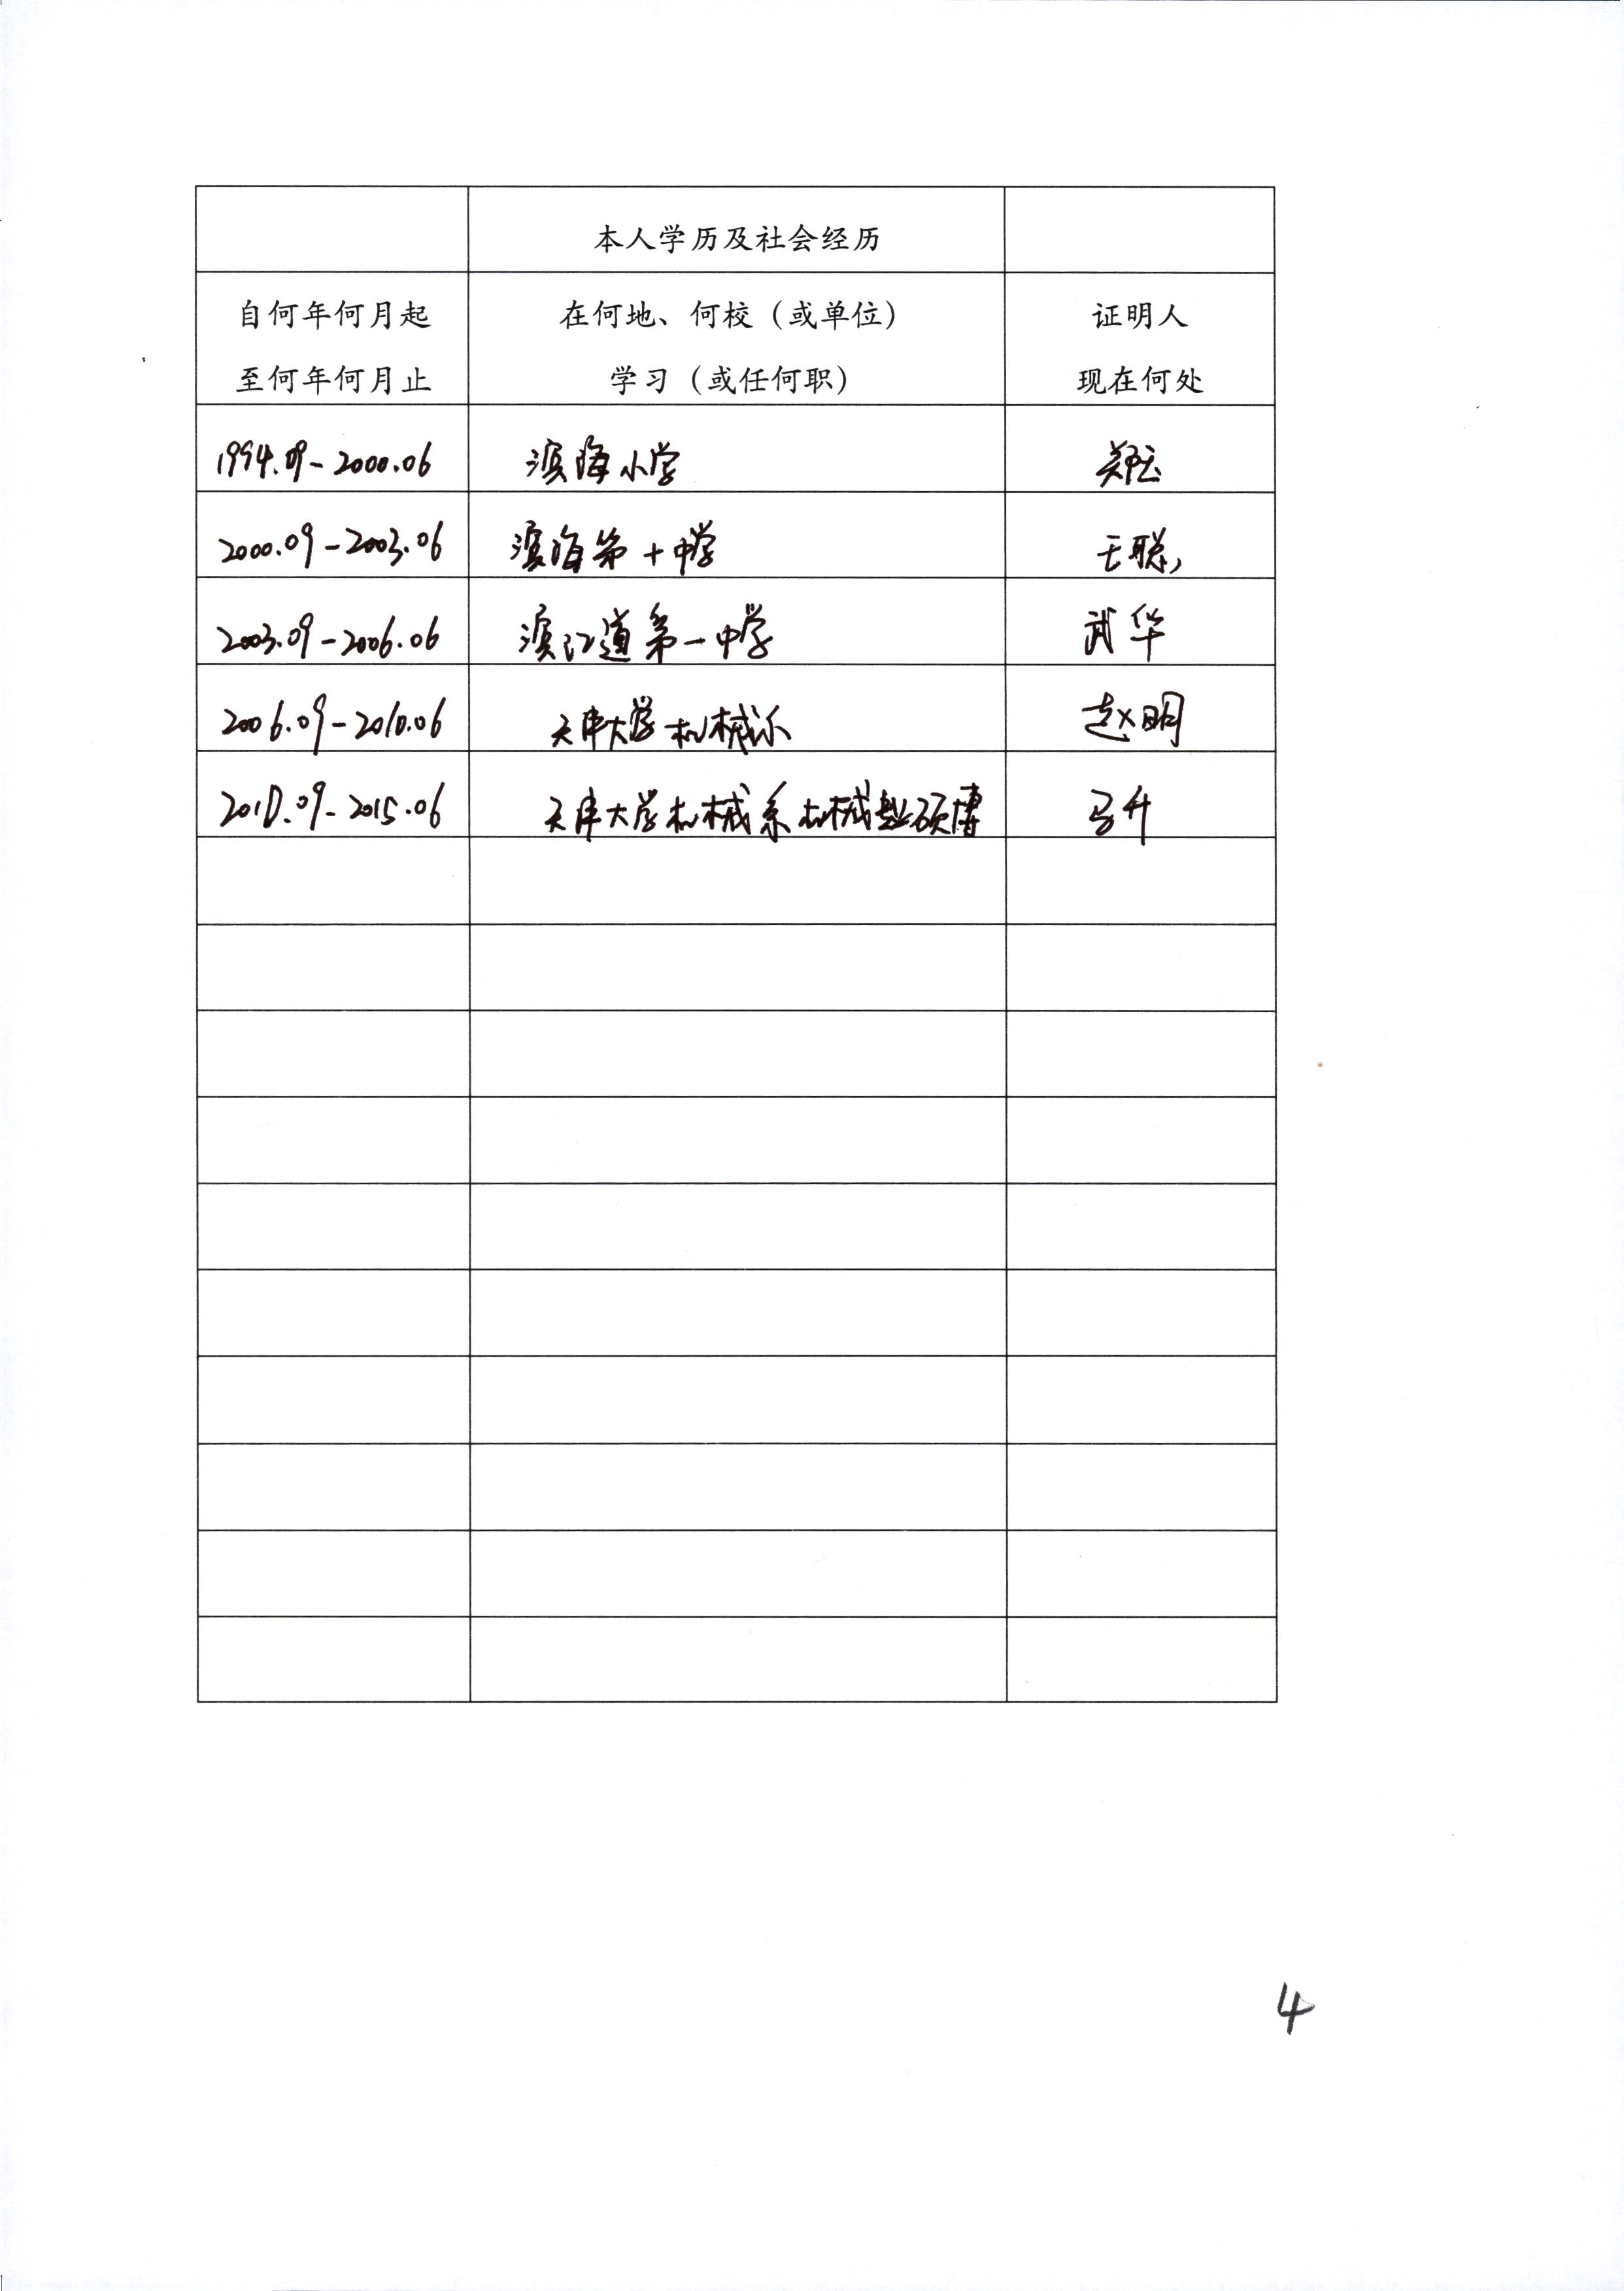 本人学历及社会经历
自何年何月起 在何地、何校（或单位） 证明人
至何年何月止 学习（或任何职） 现在何处
1994.09-2000.06 滨海小学
2000.09-2003.06 滨海第十中学 王聪
2003.09-2006.06 滨江道第一中学 武华
2006.09-2010.06 天津大学机械 赵明
2010.09-2015.06 天津大学机械系机械 硕博 马升
4